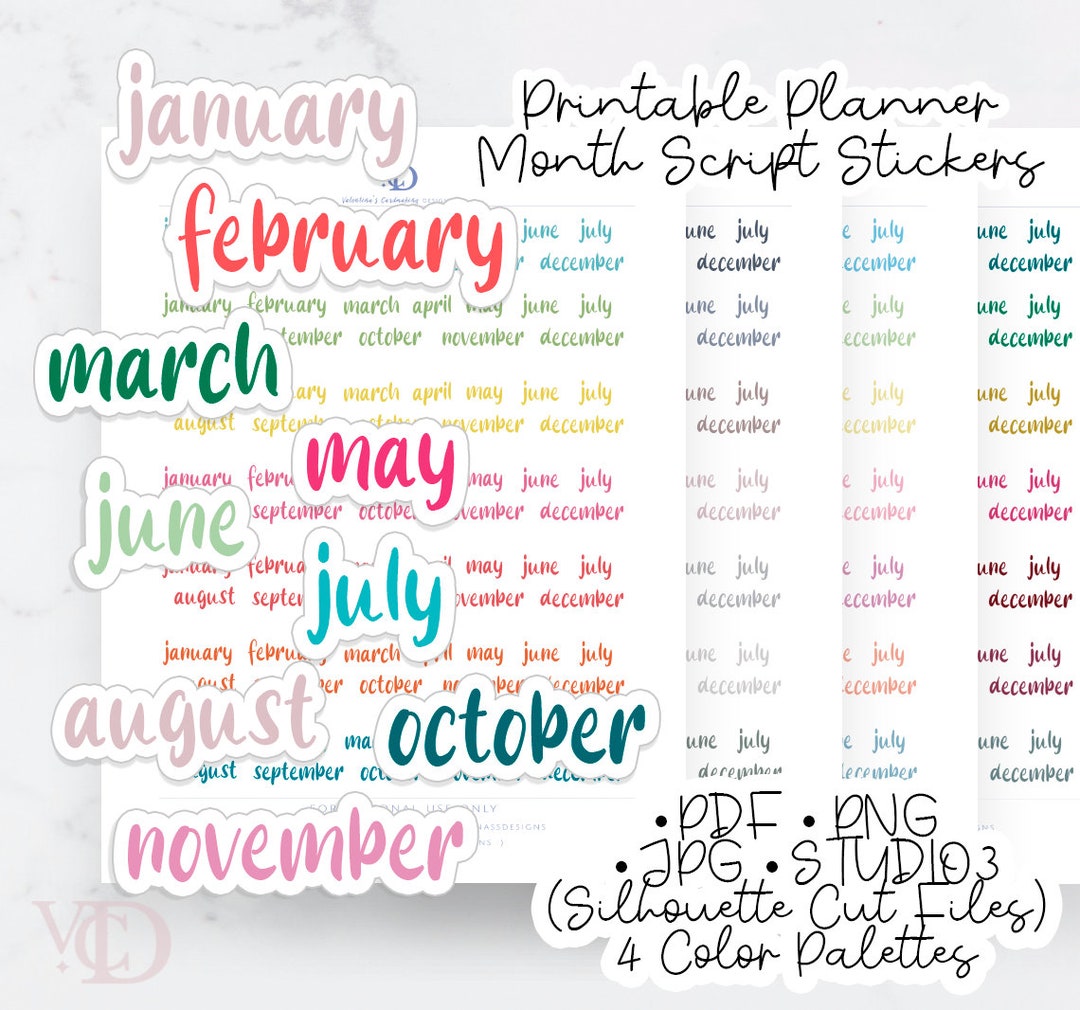 Printable Planner
Month Script Stickers
january
february
march
may
june
july
august
october
november
VCD
Valentine's Cardmakery DESIGNS
june july
december
january february march april may june july
september october november december
march april may june july
august september october november december
january may june july
september october november december
january may june july
august november december
january march april may june july
october november december
august september october november december
une july
december
une july
december
une july
december
une july
december
une july
december
une july
december
une july
december
e july
december
e july
e july
e july
december
e july
december
e july
december
e july
december
une july
december
une july
december
une july
december
une july
december
une july
december
une july
december
une july
december
USE ONLY
•PDF •PNG
•JPG •STUDIO3
(Silhouette Cut Files)
4 Color Palettes
VCD